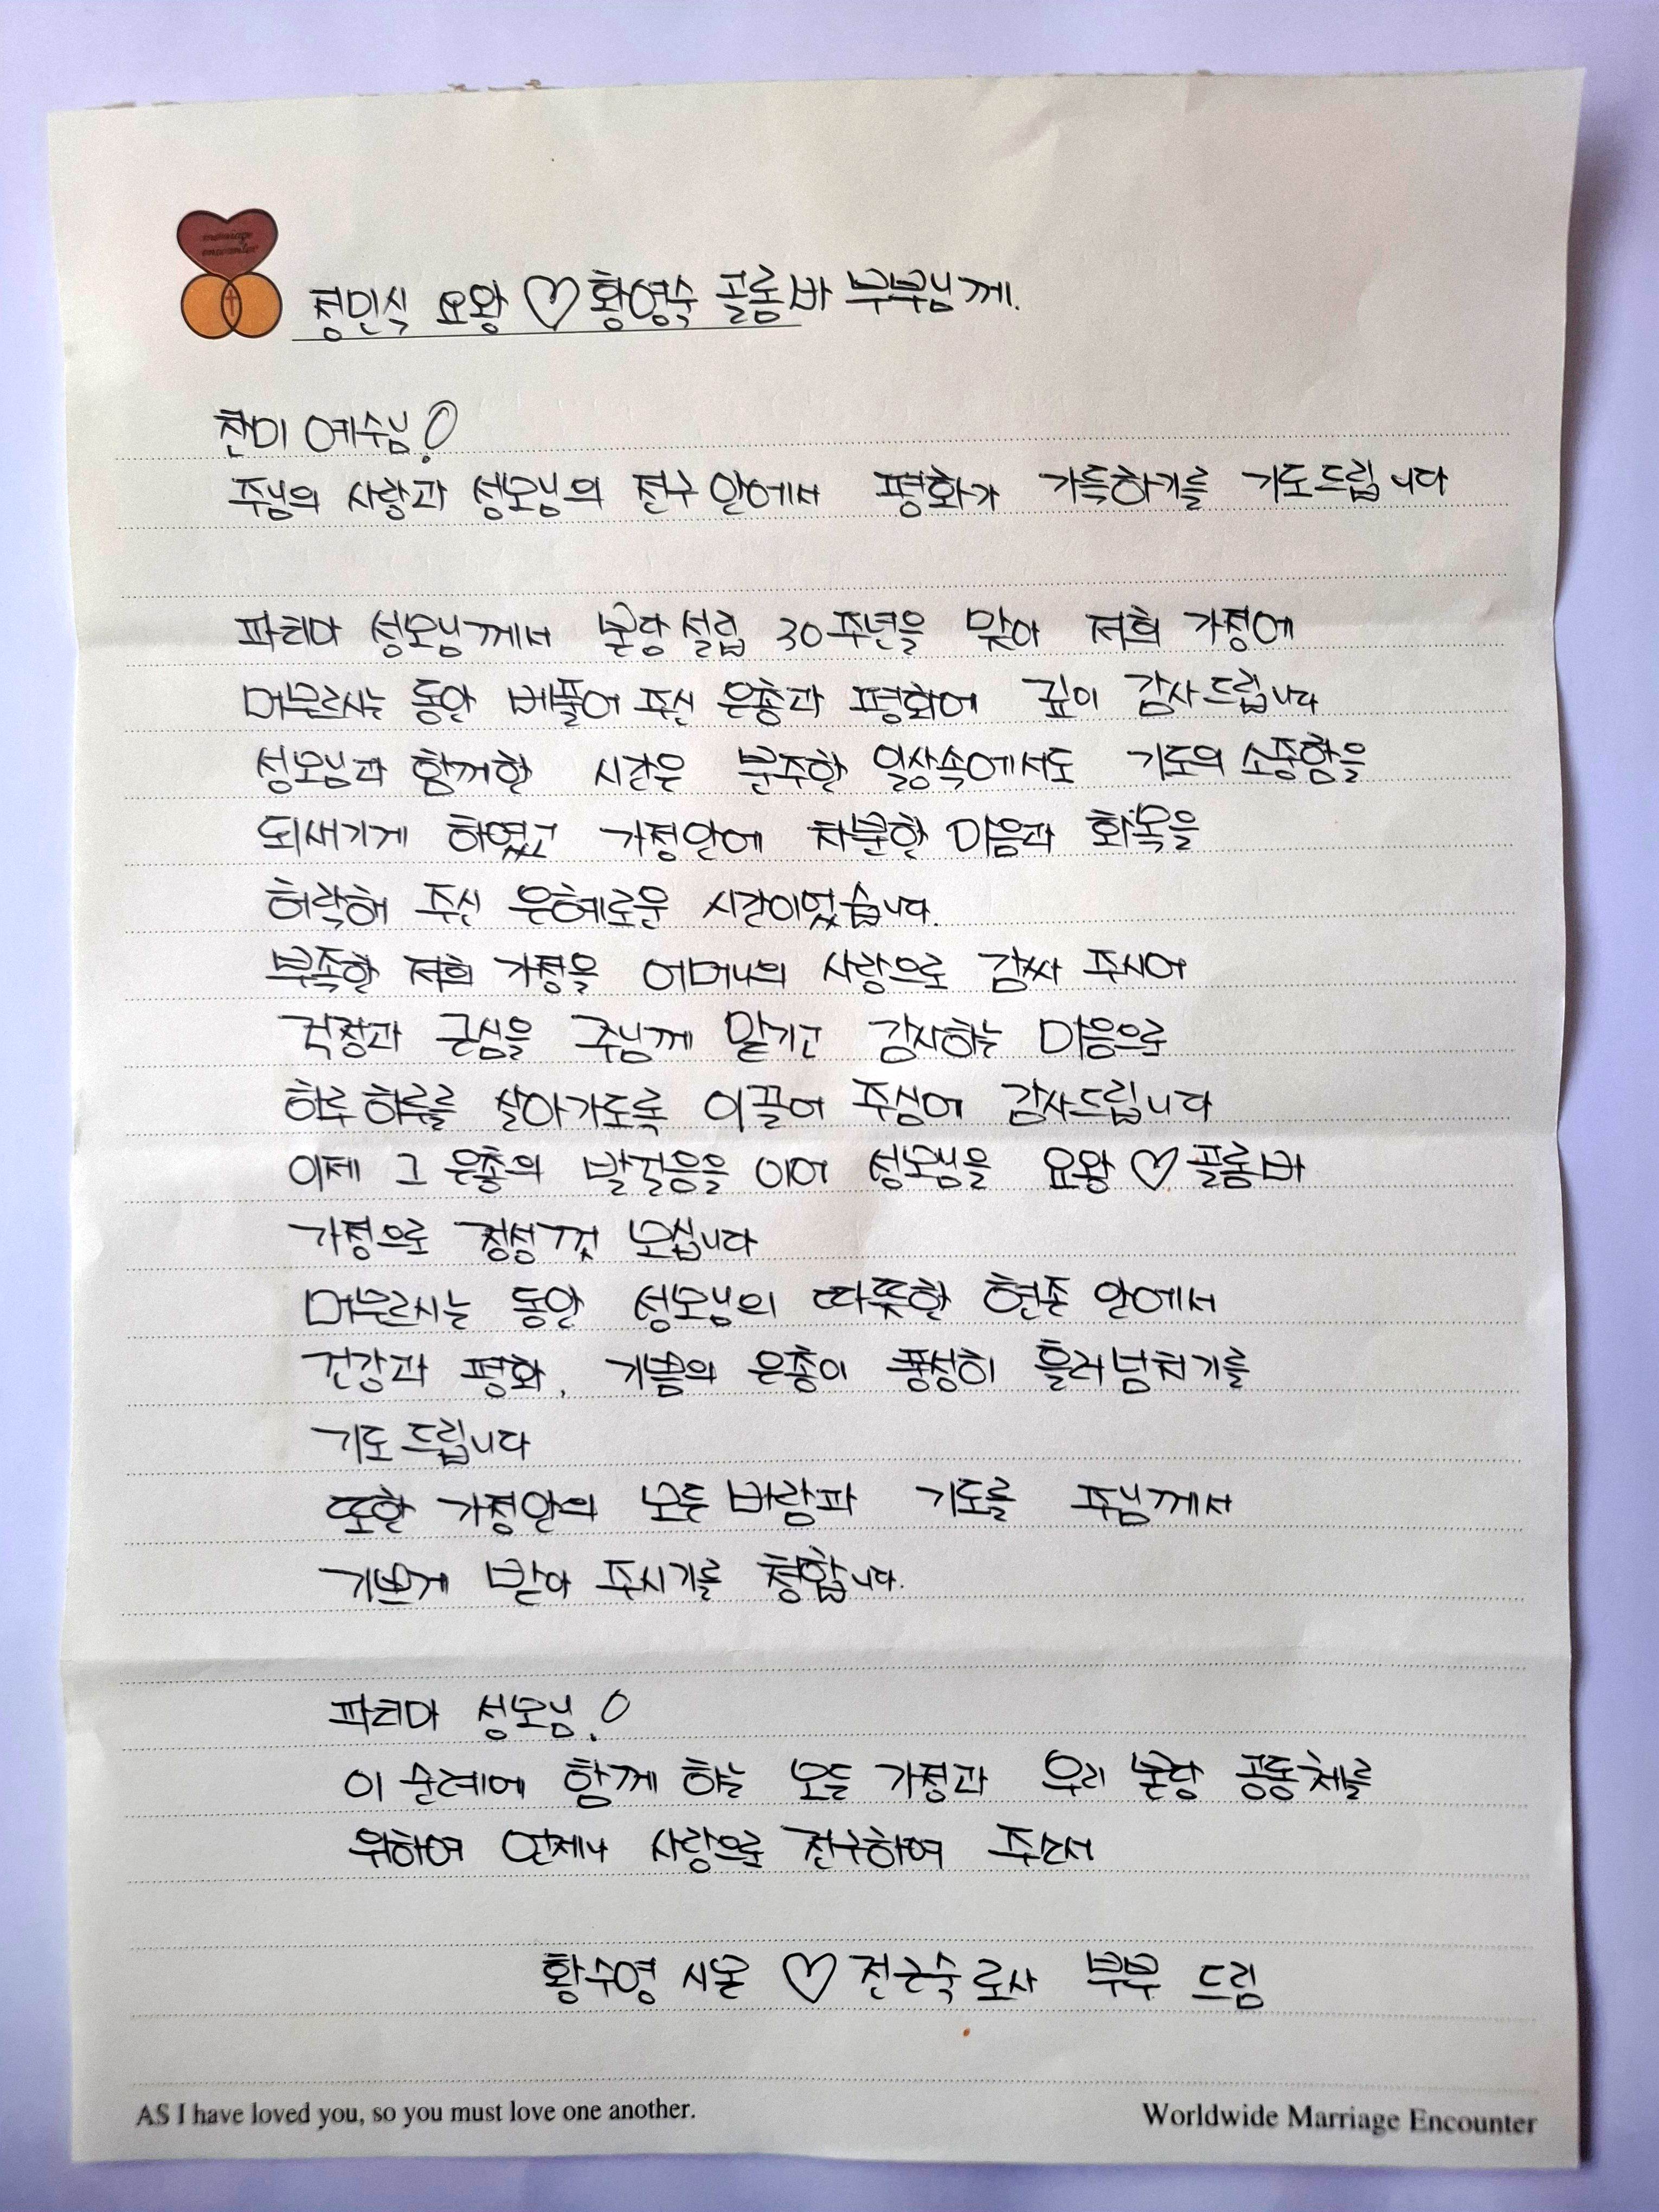 marriage
encounter
정민식 요왕 ♡ 황영숙 골롬바 부부님께.
찬미 예수님!
주님의 사랑과 성모님의 전구 안에서 평화가 가득하기를 기도드립니다
파티마 성모님께서 본당 설립 30주년을 맞아 저희 가정에
머무르시는 동안 베풀어 주신 은총과 평화에 깊이 감사드립니다
성모님과 함께한 시간은 분주한 일상속에서도 기도의 소중함을
되새기게 하였고 가정안에 차분한 마음과 화목을
허락해 주신 은혜로운 시간이었습니다.
부족한 저희 가정을 어머니의 사랑으로 감싸 주시어
걱정과 근심을 주님께 맡기고 감사하는 마음으로
하루하루를 살아가도록 이끌어 주심에 감사드립니다
이제 그 은총의 발걸음을 이어 성모님을 요왕 ♡ 골롬바
가정으로 정성껏 모십니다
머무르시는 동안 성모님의 따뜻한 현존 안에서
건강과 평화, 기쁨의 은총이 풍성히 흘러넘치기를
기도드립니다
또한 가정안의 모든 바람과 기도를 주님께서
기쁘게 받아 주시기를 청합니다.
파티마 성모님!
이 순례에 함께 하는 모든 가정과 우리 본당 공동체를
위하여 언제나 사랑으로 전구하여 주소서
황수영 시몬 ♡ 전근숙 로사 부부 드림
AS I have loved you, so you must love one another.
Worldwide Marriage Encounter